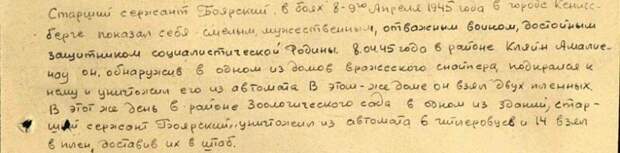 Старший сержант Боярский, в боях 8-9го Апреля 1945 года в городе Кенигс-
берге показал себя смелым, мужественным, отважным воином, достойным
защитником социалистической Родины. 8.04.45 года в районе Кляйн Амалие-
нау он, обнаружив в одном из домов вражеского снайпера, подкрался к
нему и уничтожил его из автомата. В этом-же доме он взял двух пленных.
В этот же день в районе Зоологического сада в одном из зданий, стар-
ший сержант Боярский, уничтожил из автомата 6 гитлеровцев и 14 взял
в плен, доставив их в штаб.